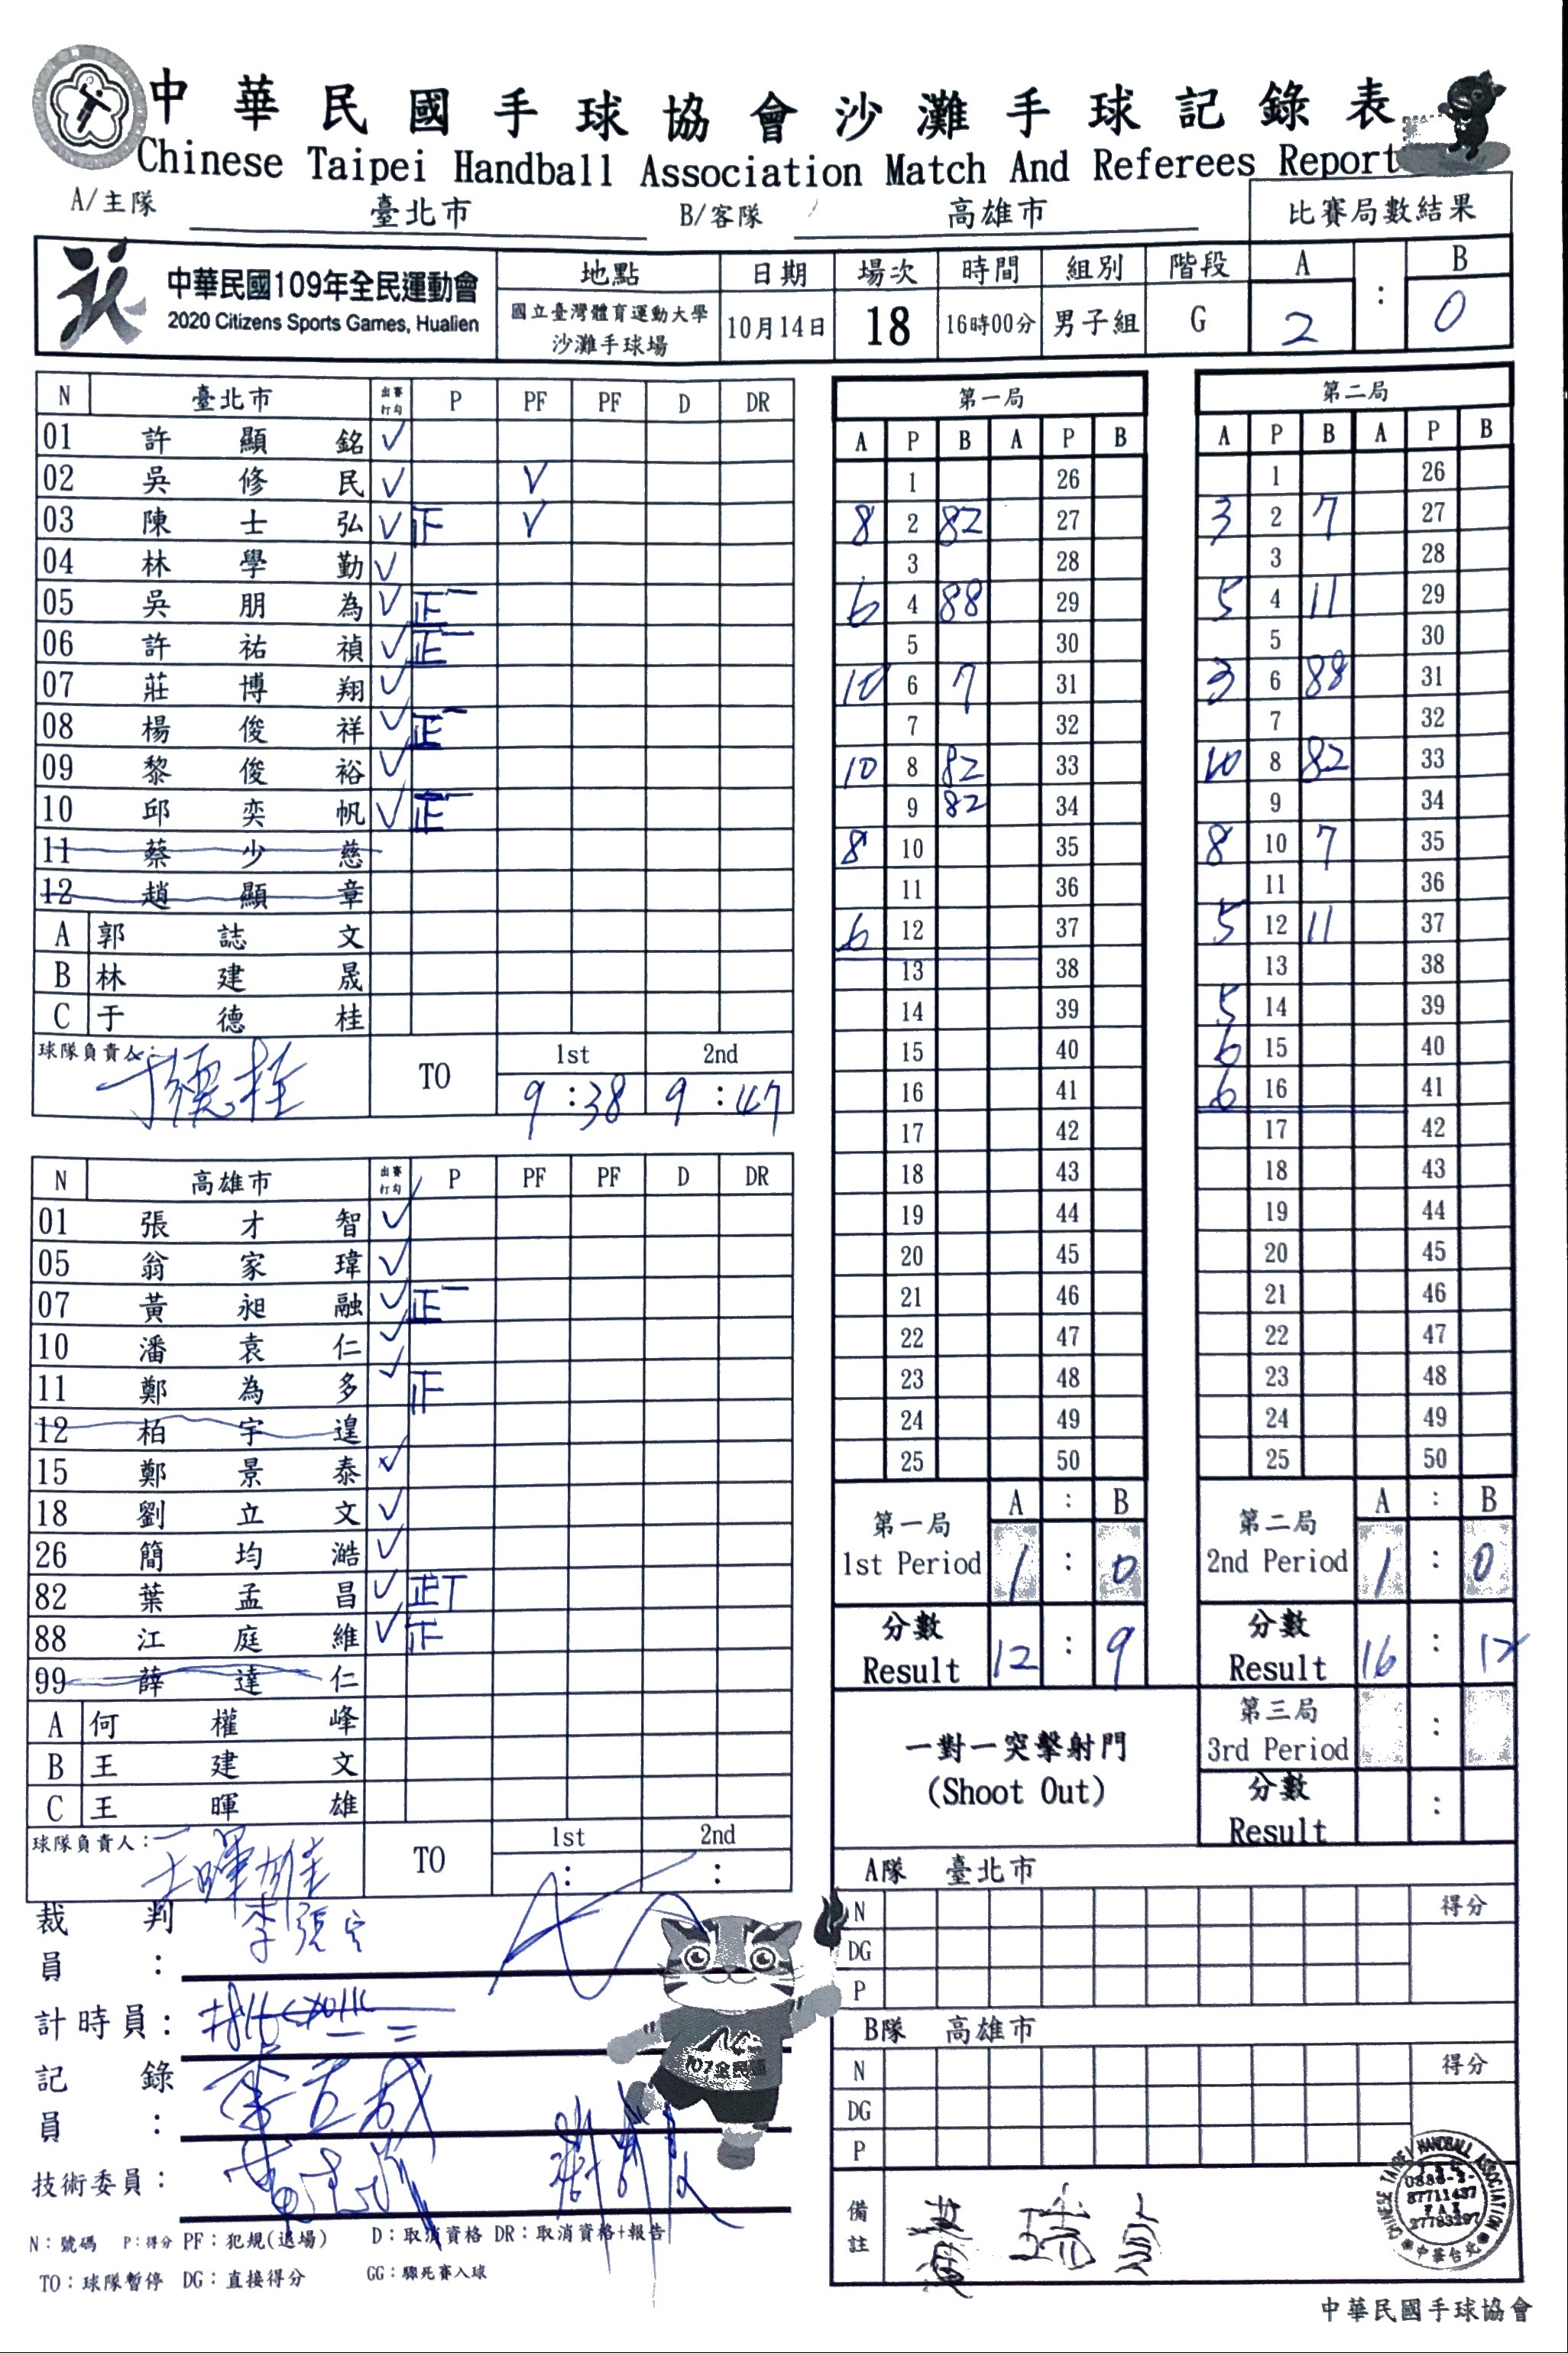 中華民國手球協會沙灘手球記錄表
Chinese Taipei Handball Association Match And Referees Report
A/主隊 臺北市 B/客隊 高雄市 比賽局數結果
中華民國109年全民運動會
2020 Citizens Sports Games, Hualien
地點 日期 場次 時間 組別 階段 A : B
國立臺灣體育運動大學
沙灘手球場
10月14日 18 16時00分 男子組 G 2 0
N 臺北市 出賽打勾 P PF PF D DR
01 許顯銘 ✓
02 吳修民 ✓ V
03 陳士弘 ✓ 正 V
04 林學勤 ✓
05 吳朋為 ✓ 正一
06 許祐禎 ✓ 正一
07 莊博翔 ✓
08 楊俊祥 ✓ 正一
09 黎俊裕 ✓
10 邱奕帆 ✓ 正一
11 蔡少慈
12 趙顯章
A 郭誌文
B 林建晟
C 于德桂
球隊負責人: 于德桂 TO 1st 2nd
9:38 9:47
N 高雄市 出賽打勾 P PF PF D DR
01 張才智 ✓
05 翁家瑋 ✓
07 黃昶融 ✓ 正一
10 潘袁仁 ✓
11 鄭為多 ✓ 正
12 柏宇遑
15 鄭景泰 ✓
18 劉立文 ✓
26 簡均澔 ✓
82 葉孟昌 ✓ 正丅
88 江庭維 ✓ 正
99 薛達仁
A 何權峰
B 王建文
C 王暉雄
球隊負責人: 王暉雄 TO 1st 2nd
: :
裁判員:
計時員:
記錄員:
技術委員:
107全民運
N：號碼 P：得分 PF：犯規(退場) D：取消資格 DR：取消資格+報告
TO：球隊暫停 DG：直接得分 GG：驟死賽入球
第一局
A P B A P B
1 26
8 2 82 27
3 28
6 4 88 29
5 30
10 6 7 31
7 32
10 8 82 33
9 82 34
8 10 35
11 36
6 12 37
13 38
14 39
15 40
16 41
17 42
18 43
19 44
20 45
21 46
22 47
23 48
24 49
25 50
第一局 A : B
1st Period 1 : 0
分數
Result 12 : 9
第二局
A P B A P B
1 26
3 2 7 27
3 28
5 4 11 29
5 30
3 6 88 31
7 32
10 8 82 33
9 34
8 10 7 35
11 36
5 12 11 37
13 38
5 14 39
6 15 40
6 16 41
17 42
18 43
19 44
20 45
21 46
22 47
23 48
24 49
25 50
第二局 A : B
2nd Period 1 : 0
分數
Result 16 : 12
一對一突擊射門
(Shoot Out)
第三局
3rd Period :
分數
Result :
A隊 臺北市
N 得分
DG
P
B隊 高雄市
N 得分
DG
P
備註
CHINESE TAIPEI HANDBALL ASSOCIATION
87711437
FAX
中華台北
中華民國手球協會